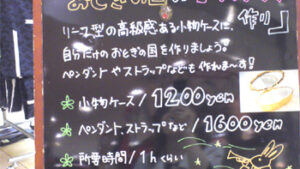 おとぎの国
作り」
リース型の高級感ある小物ケースに、
自分だけのおとぎの国を作りましょう。
ペンダントやストラップなども作れま〜す!
小物ケース/1200yen
ペンダント、ストラップなど/1600yen
所要時間/1hくらい